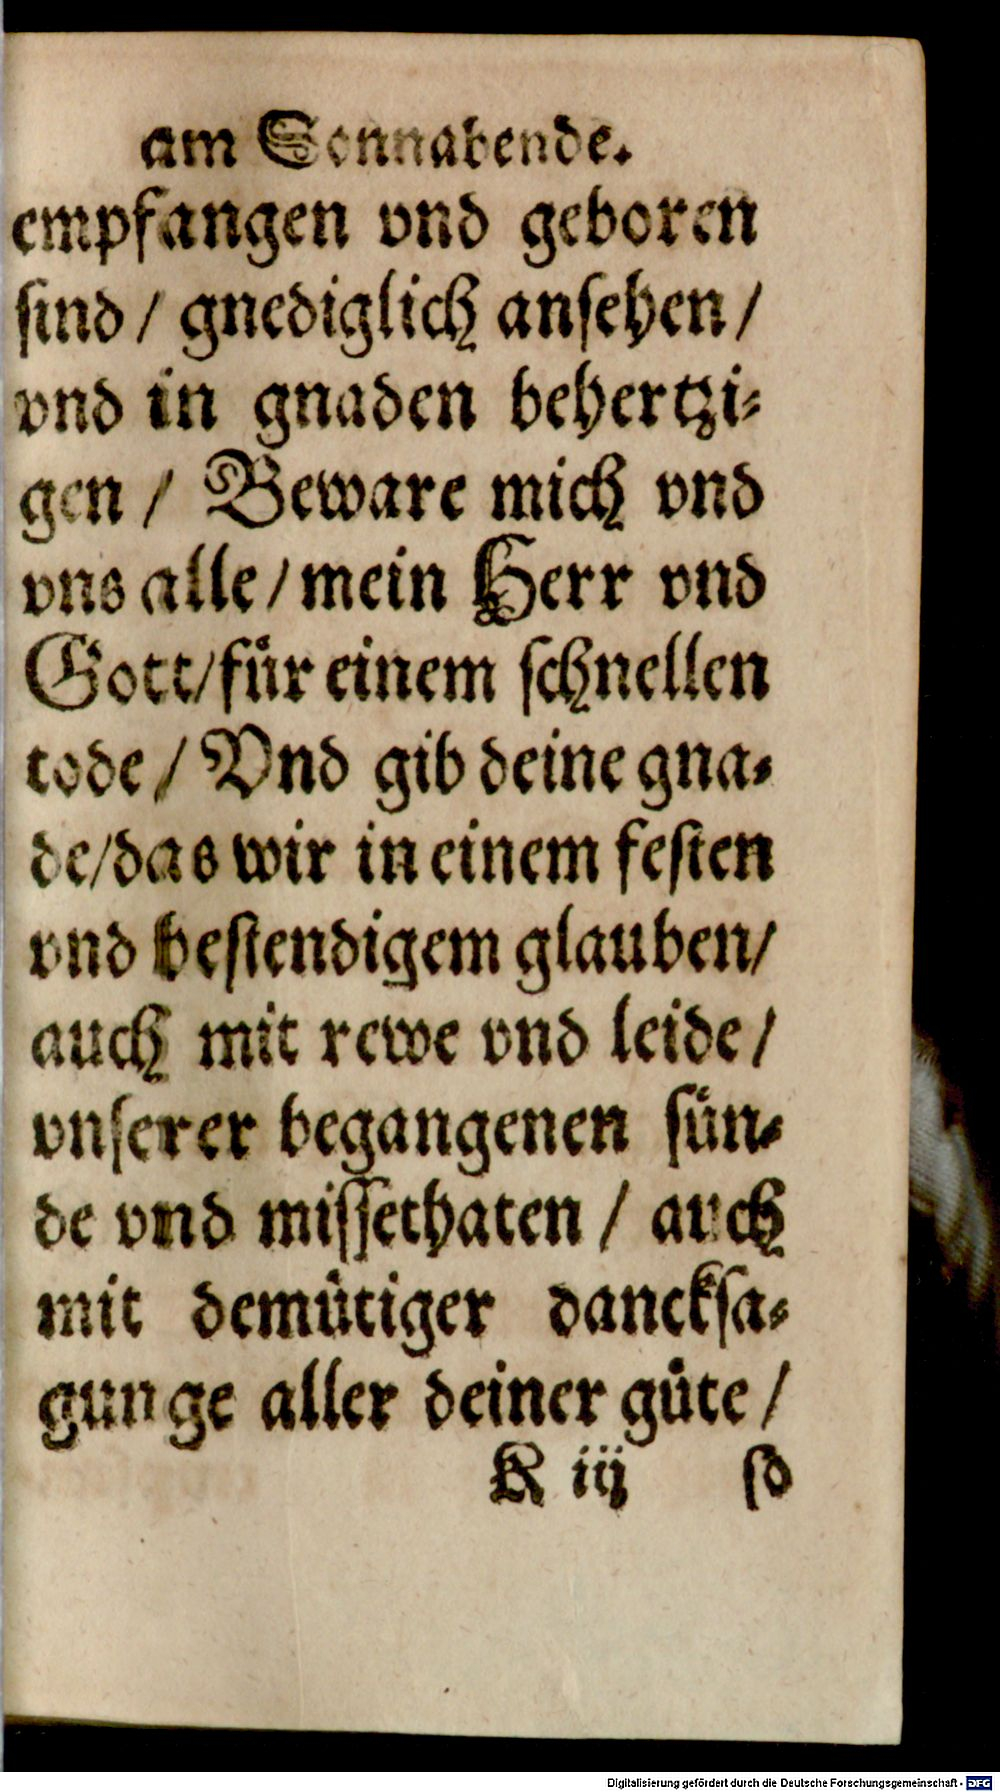 am Sonnabende.
empfangen vnd geboren
sind / gnediglich ansehen /
vnd in gnaden behertzi-
gen / Beware mich vnd
vns alle / mein Herr vnd
Gott / fuͤr einem schnellen
tode / Vnd gib deine gna-
de / das wir in einem festen
vnd bestendigem glauben /
auch mit rewe vnd leide /
vnserer begangenen suͤn-
de vnd missethaten / auch
mit demuͤtiger dancksa-
gunge aller deiner guͤte /
K iij so
Digitalisierung gefördert durch die Deutsche Forschungsgemeinschaft - DFG